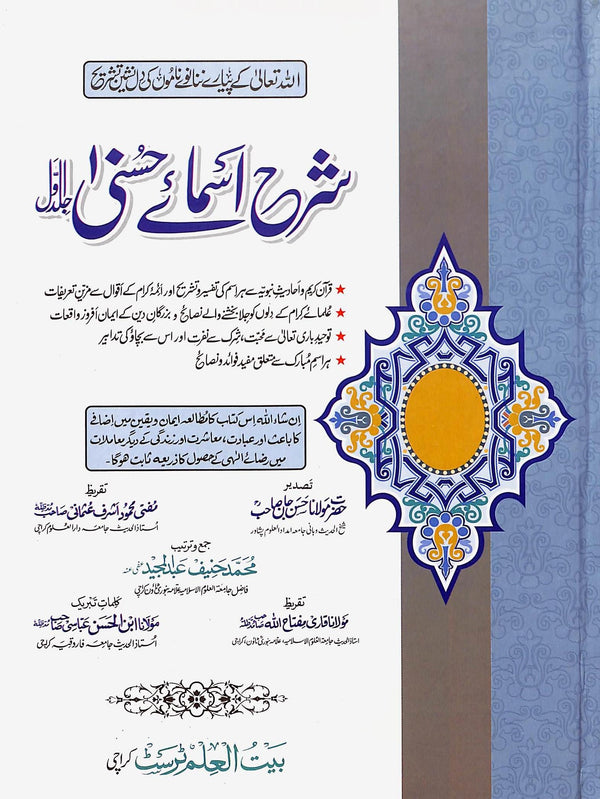 اللہ تعالیٰ کے پیارے ننانوے ناموں کی دل نشین تشریح
شرح اسمائے حسنیٰ
جلد اوّل
★ قرآن کریم و احادیث نبویہ سے ہر اسم کی تفسیر و تشریح اور ائمۂ کرام کے اقوال سے مزین تعریفات
★ علمائے کرام کے دلوں کو جلا بخشنے والے نصائح و بزرگان دین کے ایمان افروز واقعات
★ توحید باری تعالیٰ سے محبت، شرک سے نفرت اور اس سے بچاؤ کی تدابیر
★ ہر اسم مبارک سے متعلق مفید فوائد و نصائح
ان شاء اللہ اس کتاب کا مطالعہ ایمان و یقین میں اضافے
کا باعث اور عبادت، معاشرت اور زندگی کے دیگر معاملات
میں رضائے الٰہی کے حصول کا ذریعہ ثابت ہوگا۔
تصدیر
حضرت مولانا حسن جان صاحب
شیخ الحدیث و بانی جامعہ امداد العلوم پشاور
تقریظ
مفتی محمود اشرف عثمانی صاحب
استاذ الحدیث جامعہ دارالعلوم کراچی
جمع و ترتیب
محمد حنیف عبدالمجید عفی عنہ
فاضل جامعۃ العلوم الاسلامیہ علامہ بنوری ٹاؤن کراچی
تقریظ
مولانا قاری مفتاح اللہ صاحب
استاذ الحدیث جامعۃ العلوم الاسلامیہ علامہ بنوری ٹاؤن، کراچی
کلمات تبریک
مولانا ابن الحسن عباسی صاحب
استاذ الحدیث جامعہ فاروقیہ کراچی
بیت العلم ٹرسٹ کراچی